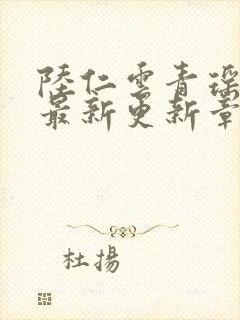 陸仁雲青瑶
最新更新章
杜揚